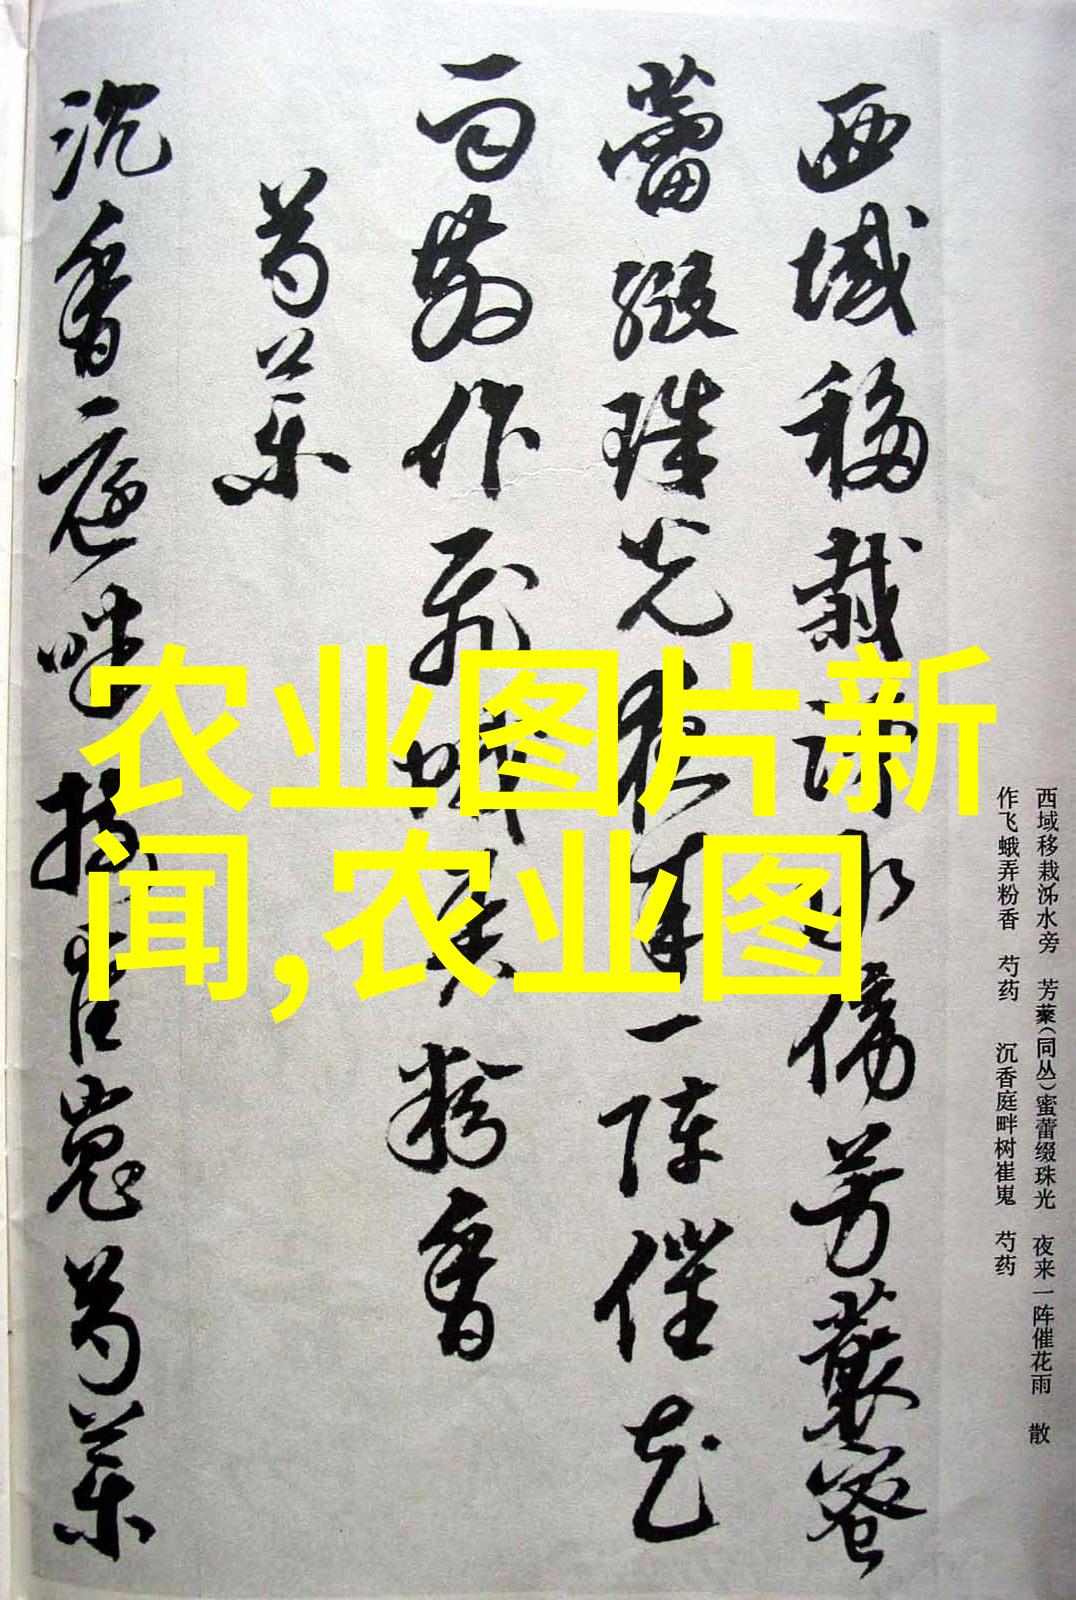 西域移栽泲水旁 芳藂(同丛)蜜蕾缀珠光 夜来一阵催花雨 散
作飞蛾弄粉香 芍药 沉香庭畔树崔嵬 芍药
西域移栽水傍芳藂蜜
蕾缀珠光夜来一阵催花
雨散作飛蛾弄粉香
芍药
沉香庭畔树崔嵬芍药
农业图片新
闻,农业图